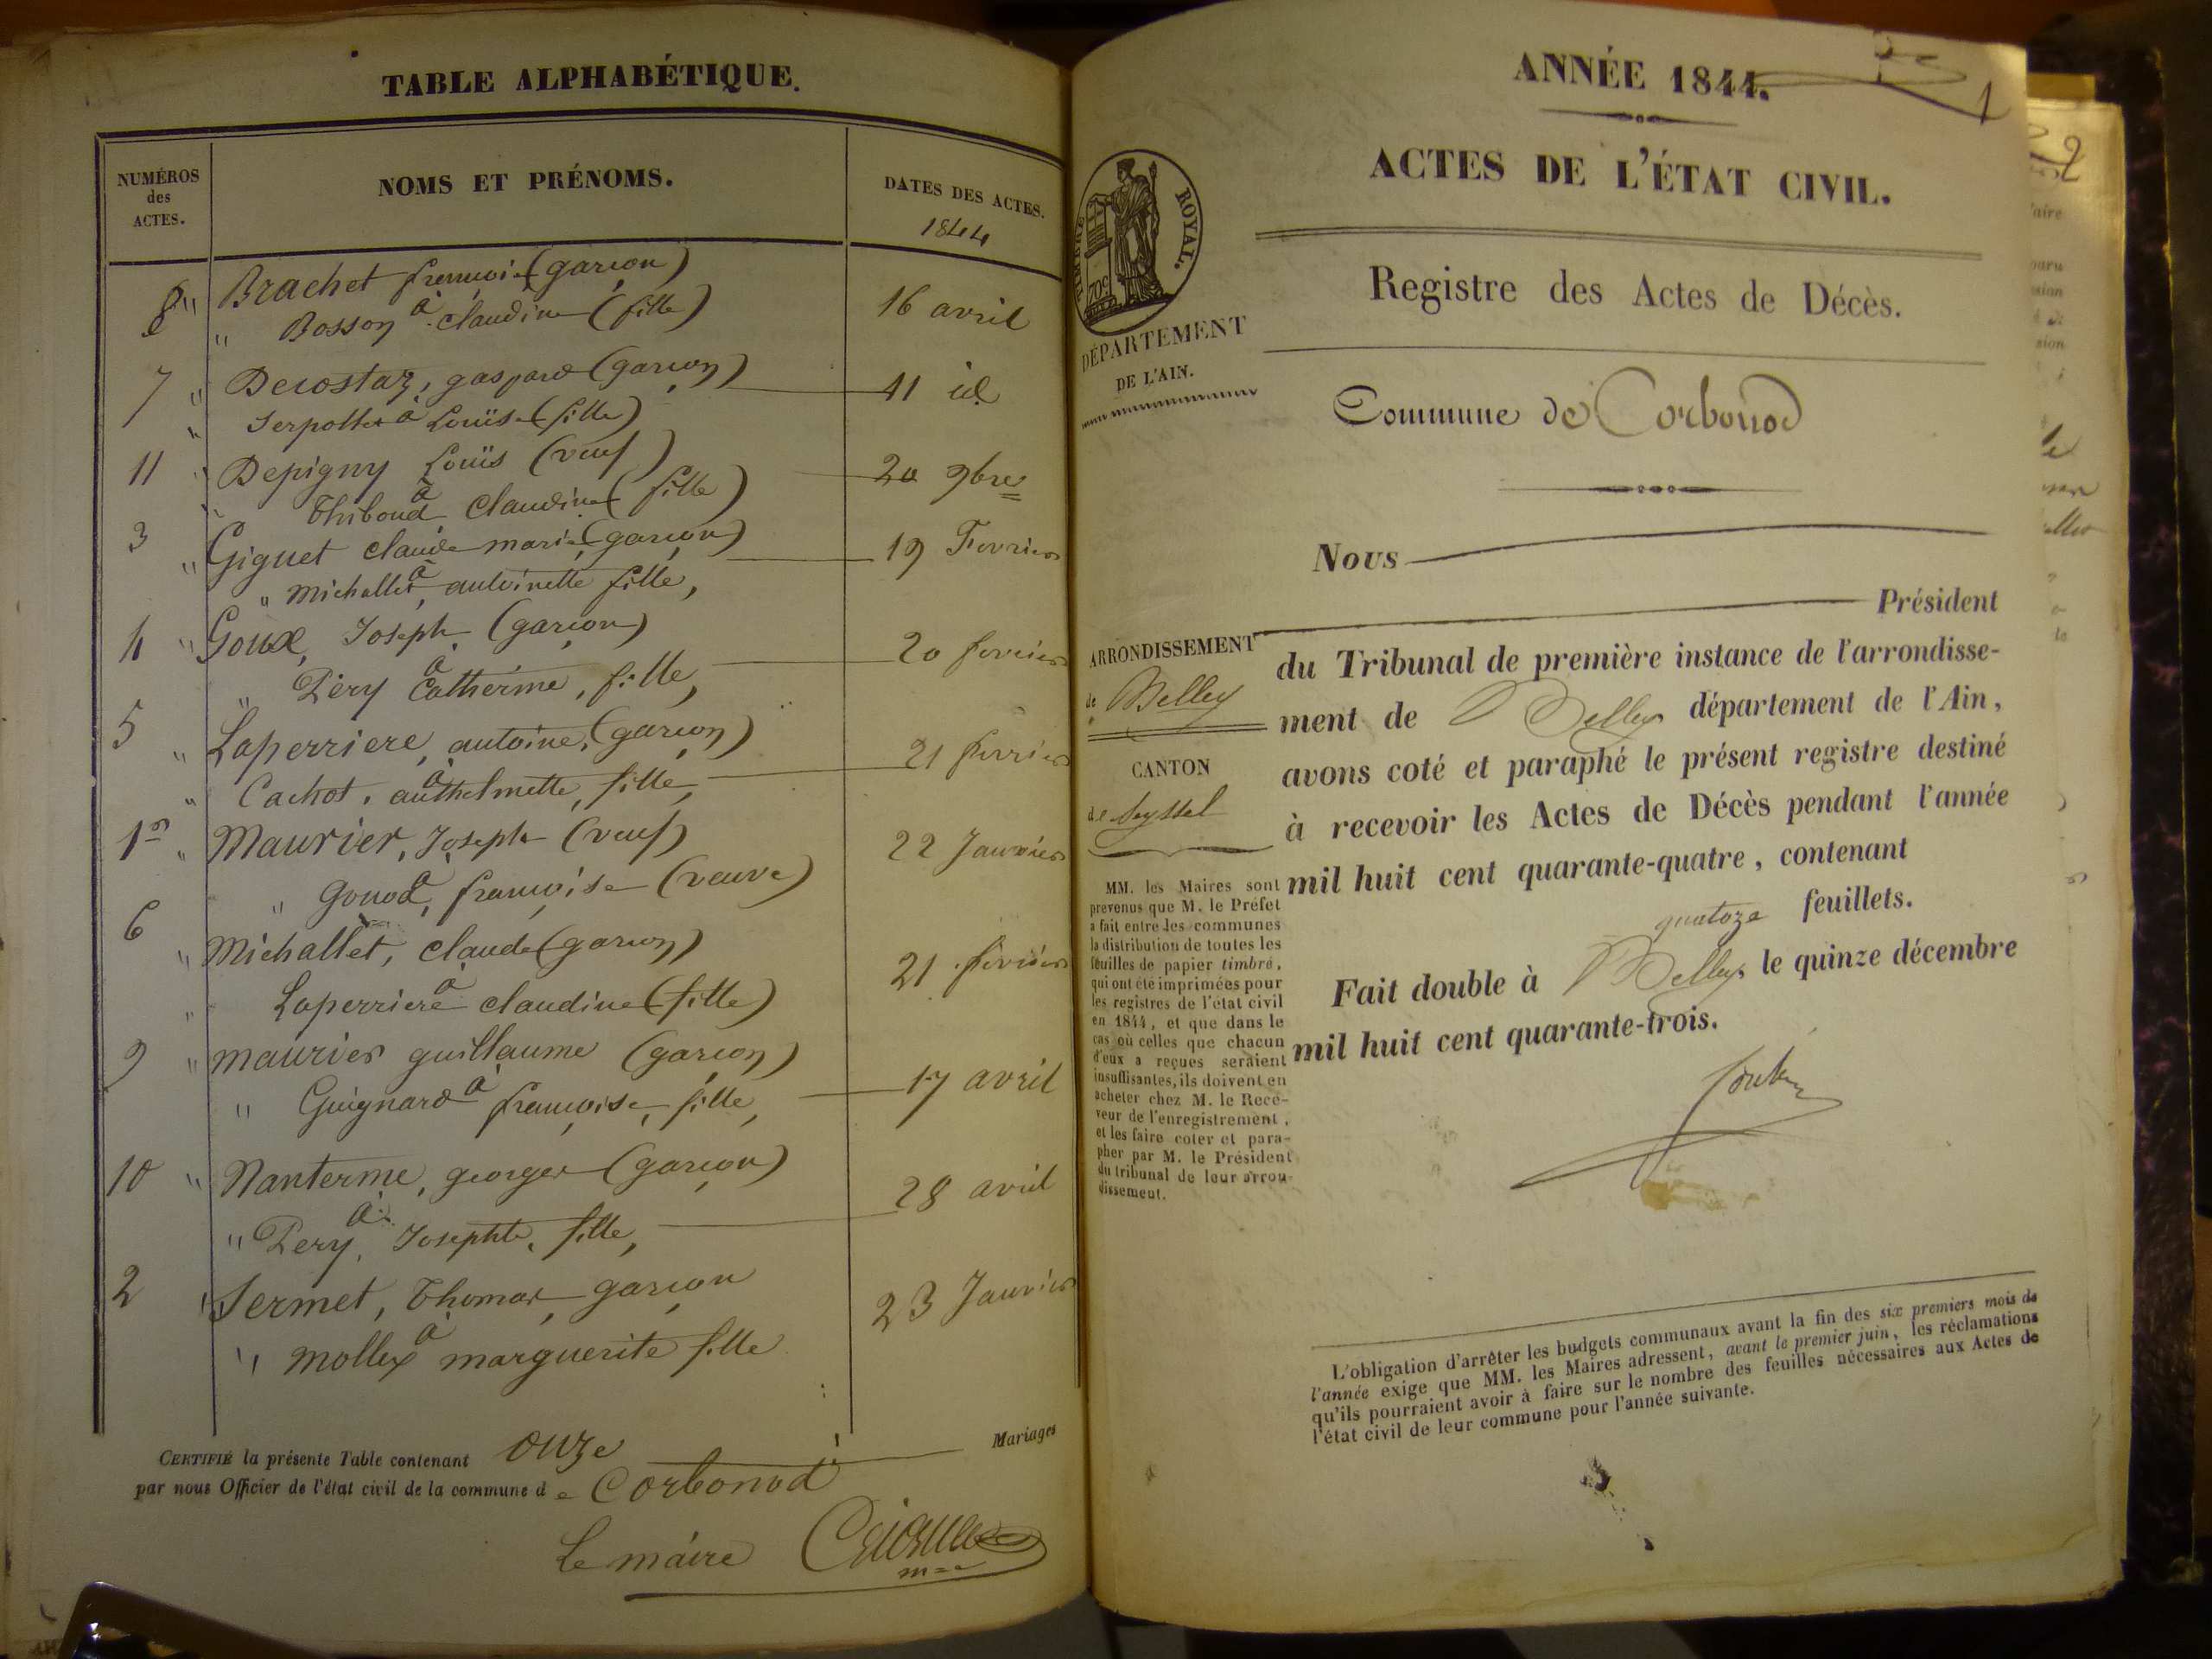 TABLE ALPHABÉTIQUE.
NUMÉROS
des
ACTES.
NOMS ET PRÉNOMS.
DATES DES ACTES.
1844
8 " Brachet françois (garçon)
" Bosson à claudine (fille)
16 avril
7 " Decostaz, gaspard (garçon)
11 id
" Serpollet à Louïse (fille)
11 " Depigny Louïs (veuf)
20 9bre
" Thiboud à Claudine (fille)
3 " Giguet claude marie (garçon)
19 Fevrier
" Michallet à, antoinette fille,
4 " Goux, Joseph (garçon)
20 fevrier
" Péry à Catherine, fille,
5 " Laperriere, antoine, (garçon)
21 fevrier
" Cachot, à anthelmette, fille,
1er " Maurier, Joseph (veuf)
22 Janvier
" Gonod à, françoise (veuve)
6 " Michallet, claude (garçon)
21 fevrier
" Laperriere à claudine (fille)
9 " maurier guillaume (garçon)
17 avril
" Guignard à françoise, fille,
10 " Nanterme, george (garçon)
28 avril
" Pery à, Josephte, fille,
2 " Sermet, Thomas, garçon
23 Janvier
" Mollex à marguerite fille
CERTIFIÉ la présente Table contenant onze Mariages
par nous Officier de l'état civil de la commune de Corbonod
Le maire
ANNÉE 1844.
1
ACTES DE L'ÉTAT CIVIL.
TIMBRE ROYAL.
70c
DÉPARTEMENT
DE L'AIN.
Registre des Actes de Décès.
Commune de Corbonod
Nous
Président
ARRONDISSEMENT
de Belley
CANTON
de Seyssel
du Tribunal de première instance de l'arrondisse-
ment de Belley département de l'Ain,
avons coté et paraphé le présent registre destiné
à recevoir les Actes de Décès pendant l'année
mil huit cent quarante-quatre, contenant
quatoze feuillets.
Fait double à Belley le quinze décembre
mil huit cent quarante-trois.
MM. les Maires sont
prévenus que M. le Préfet
a fait entre les communes
la distribution de toutes les
feuilles de papier timbré,
qui ont été imprimées pour
les registres de l'état civil
en 1844, et que dans le
cas où celles que chacun
d'eux a reçues seraient
insuffisantes, ils doivent en
acheter chez M. le Rece-
veur de l'enregistrement,
et les faire coter et para-
pher par M. le Président
du tribunal de leur arron-
dissement.
L'obligation d'arrêter les budgets communaux avant la fin des six premiers mois de
l'année exige que MM. les Maires adressent, avant le premier juin, les réclamations
qu'ils pourraient avoir à faire sur le nombre des feuilles nécessaires aux Actes de
l'état civil de leur commune pour l'année suivante.
2